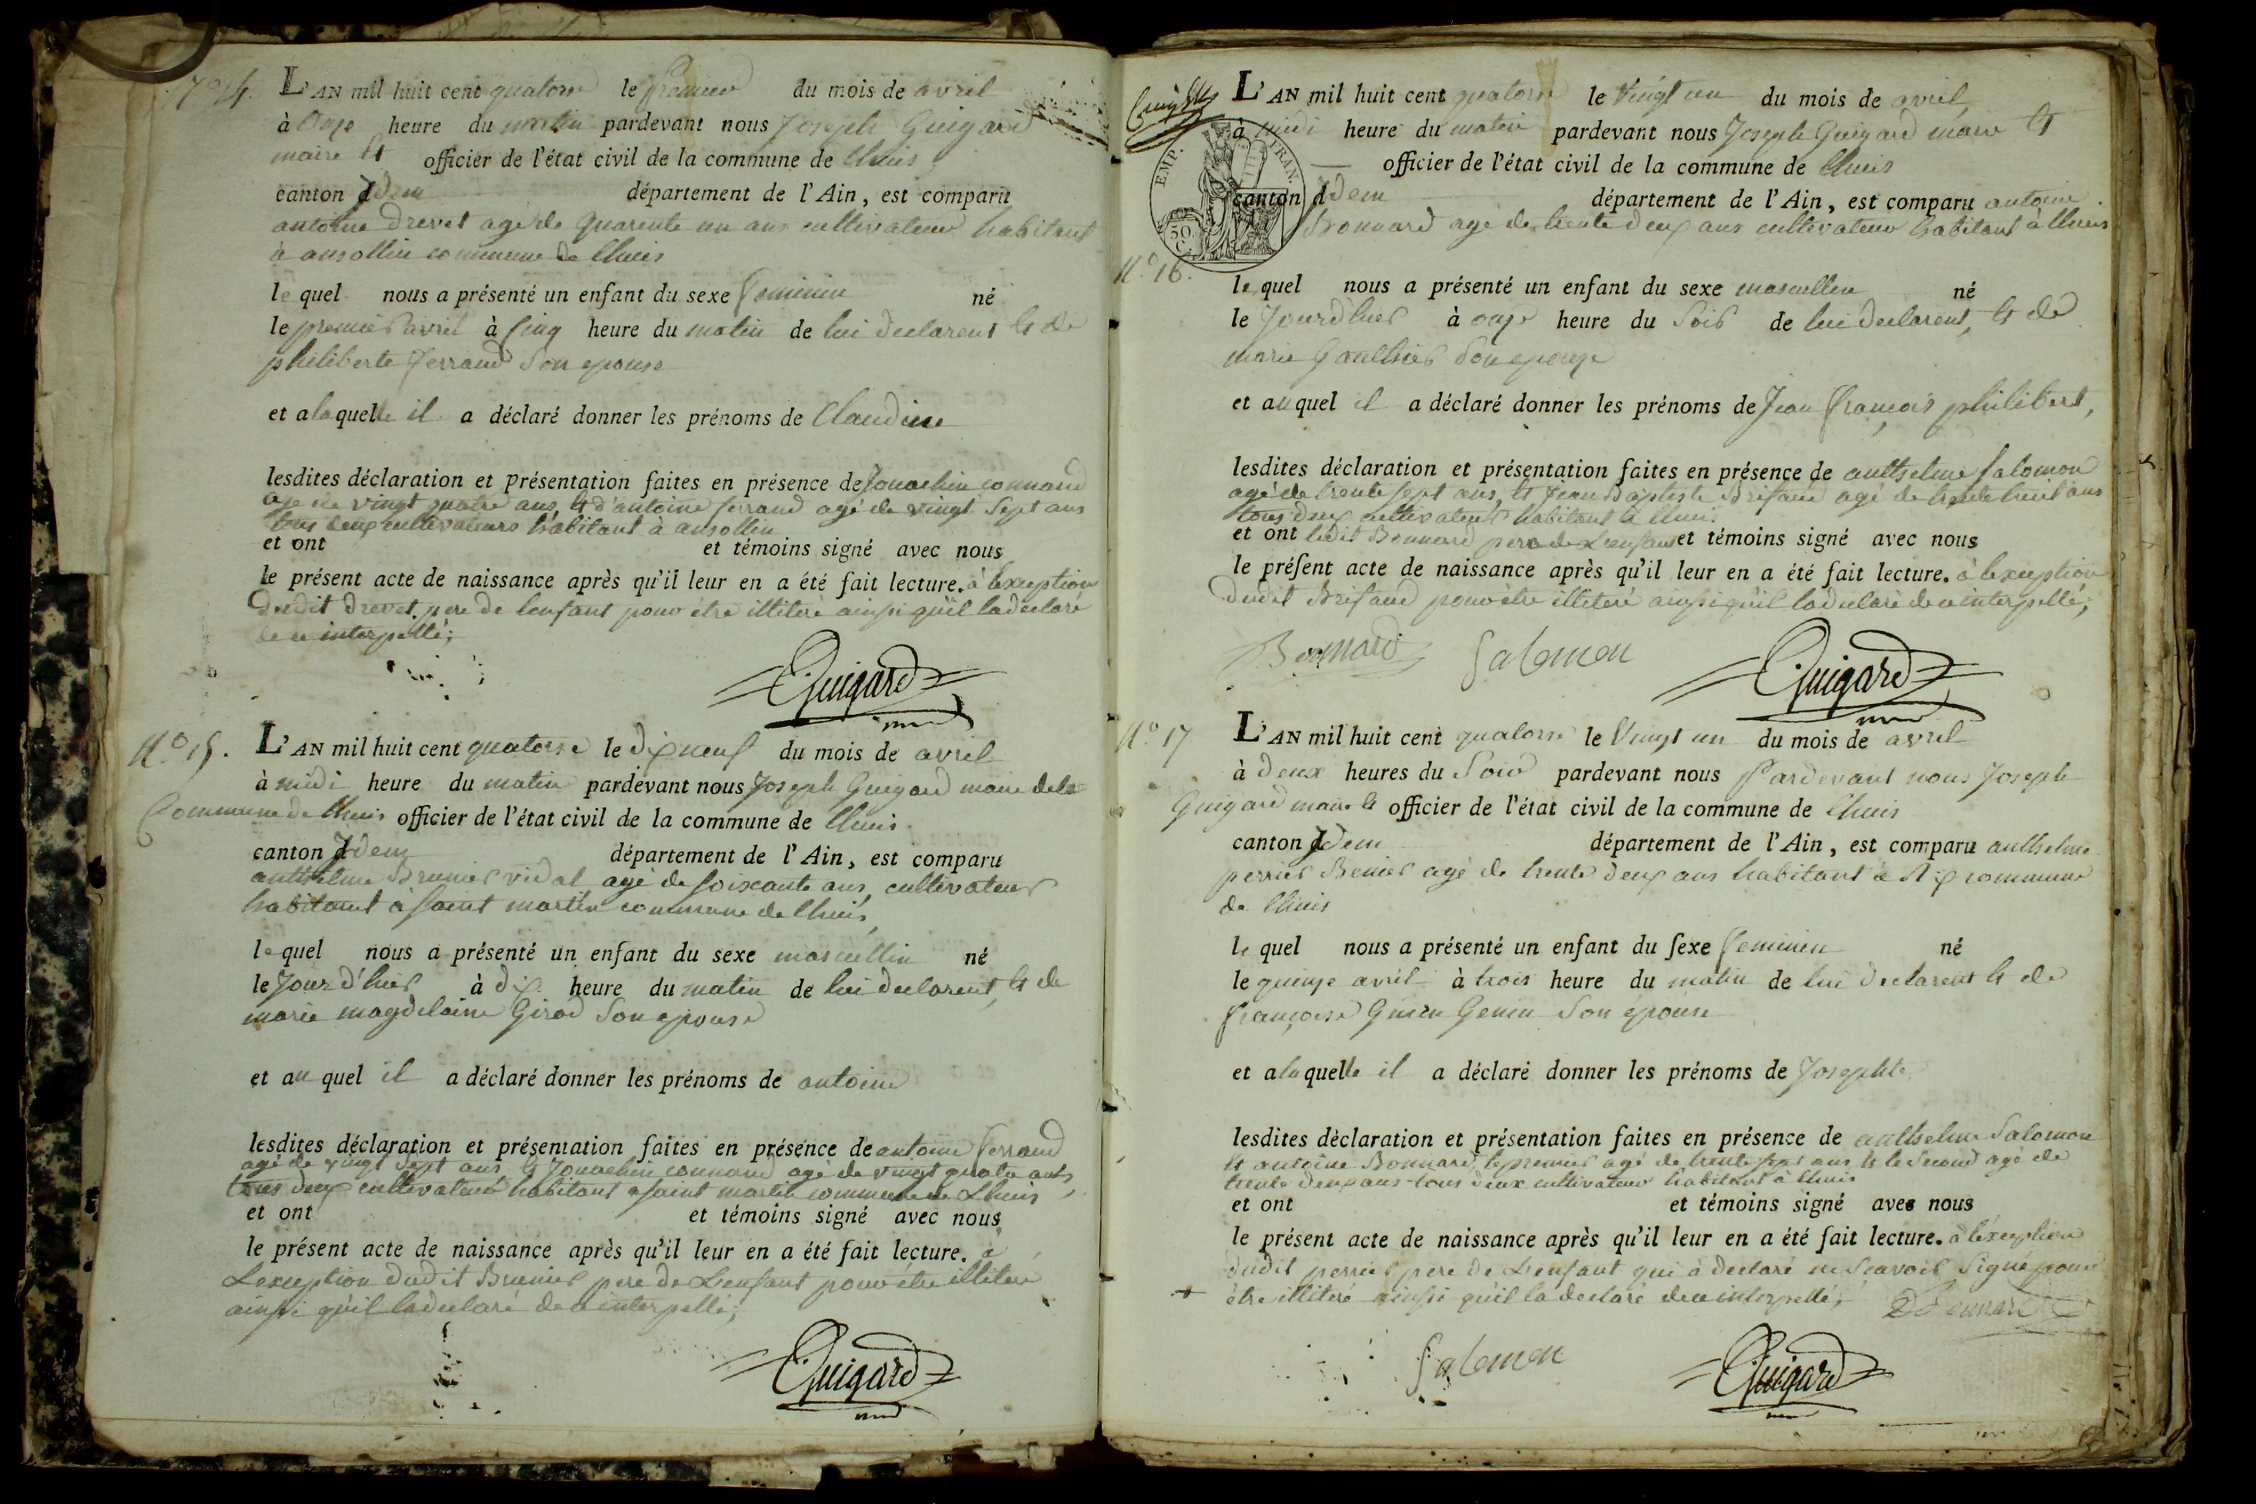 N.º 14.
L'AN mil huit cent quatorse le premier du mois de avril
à onze heure du matin pardevant nous Joseph Guigard
maire et officier de l'état civil de la commune de Lhuis
canton Idem département de l'Ain, est comparu
antoine Drevet agé de quarente un ans cultivateur habitant
à ansollin commune de Lhuis
lequel nous a présenté un enfant du sexe feminin né
le premier avril à Cinq heure du matin de lui declarent et de
philiberte ferrand son epouse
et alaquelle il a déclaré donner les prénoms de Claudine
lesdites déclaration et présentation faites en présence de Jouachin connand
age de vingt quatre ans, et d'antoine ferrand agé de vingt sept ans
tous deux cultivateurs habitant à ansollin
et ont et témoins signé avec nous
le présent acte de naissance après qu'il leur en a été fait lecture. à lexception
dudit Drevet pere de lenfant pour être illiteré ainssi qu'il la declaré
de ce interpellé;
Guigard
N.º 15.
L'AN mil huit cent quatorse le dix neuf du mois de avril
à midi heure du matin pardevant nous Joseph Guigard maire dela
Commune de Lhuis officier de l'état civil de la commune de Lhuis
canton Idem département de l'Ain, est comparu
anthelme Brunier vidal agé de soixante ans, cultivateur
habitant à saint martin commune de Lhuis,
lequel nous a présenté un enfant du sexe mascullin né
le Jour d'hier à dix heure du matin de lui declarent, et de
marie magdelaine Girod son epouse
et au quel il a déclaré donner les prénoms de antoine
lesdites déclaration et présentation faites en présence de antoine ferrand
agé de vingt sept ans, et Jouachin connand agé de vingt quatre ans,
tous deux cultivateurs habitant a saint martin commune de Lhuis
et ont et témoins signé avec nous
le présent acte de naissance après qu'il leur en a été fait lecture. à
Lexception dudit Brunier pere de Lenfant pour être illiteré
ainssi qu'il la declaré de ce interpellé;
Guigard
EMP. FRAN.
50 C.
N.º 16.
L'AN mil huit cent quatorse le Vingt un du mois de avril,
à midi heure du matin pardevant nous Joseph Guigard maire et
officier de l'état civil de la commune de Lhuis
canton Idem département de l'Ain, est comparu antoine
Bonnard agé de trente deux ans cultivateur habitant à Lhuis
lequel nous a présenté un enfant du sexe mascullin né
le Jourd'hier à onze heure du Soir de lui declarent, et de
marie Gauthier son epouze
et auquel il a déclaré donner les prénoms de Jean françois philibert,
lesdites déclaration et présentation faites en présence de anthelme salomon
agé de trente sept ans, et Jean Baptiste Brifand agé de trente huit ans
tous deux cultivateurs habitant à Lhuis
et ont ledit Bonnard pere de Lenfant et témoins signé avec nous
le présent acte de naissance après qu'il leur en a été fait lecture. à lexception
dudit Brifand pour être illiteré ainssi qu'il la declaré de ce interpellé;
Bonnard Salomon Guigard
N.º 17
L'AN mil huit cent quatorse le Vingt un du mois de avril
à deux heures du Soir pardevant nous Pardevant nous Joseph
Guigard maire et officier de l'état civil de la commune de Lhuis
canton Idem département de l'Ain, est comparu anthelme
perrier Benier agé de trente deux ans habitant à Rix commune
de Lhuis
lequel nous a présenté un enfant du sexe feminin né
le quinze avril à trois heure du matin de lui declarent et de
françoise Genin son épouse
et alaquelle il a déclaré donner les prénoms de Josephte
lesdites déclaration et présentation faites en présence de anthelme Salomon
et antoine Bonnard, le premier agé de trente sept ans et le second agé de
trente deux ans tous deux cultivateur habitant à Lhuis
et ont et témoins signé avec nous
le présent acte de naissance après qu'il leur en a été fait lecture. à l'exception
dudit perrier pere de Lenfant qui à declaré ne scavoir Signé pour
être illiteré ainssi qu'il la declaré de ce interpellé;
Bonnard
Salomon Guigard